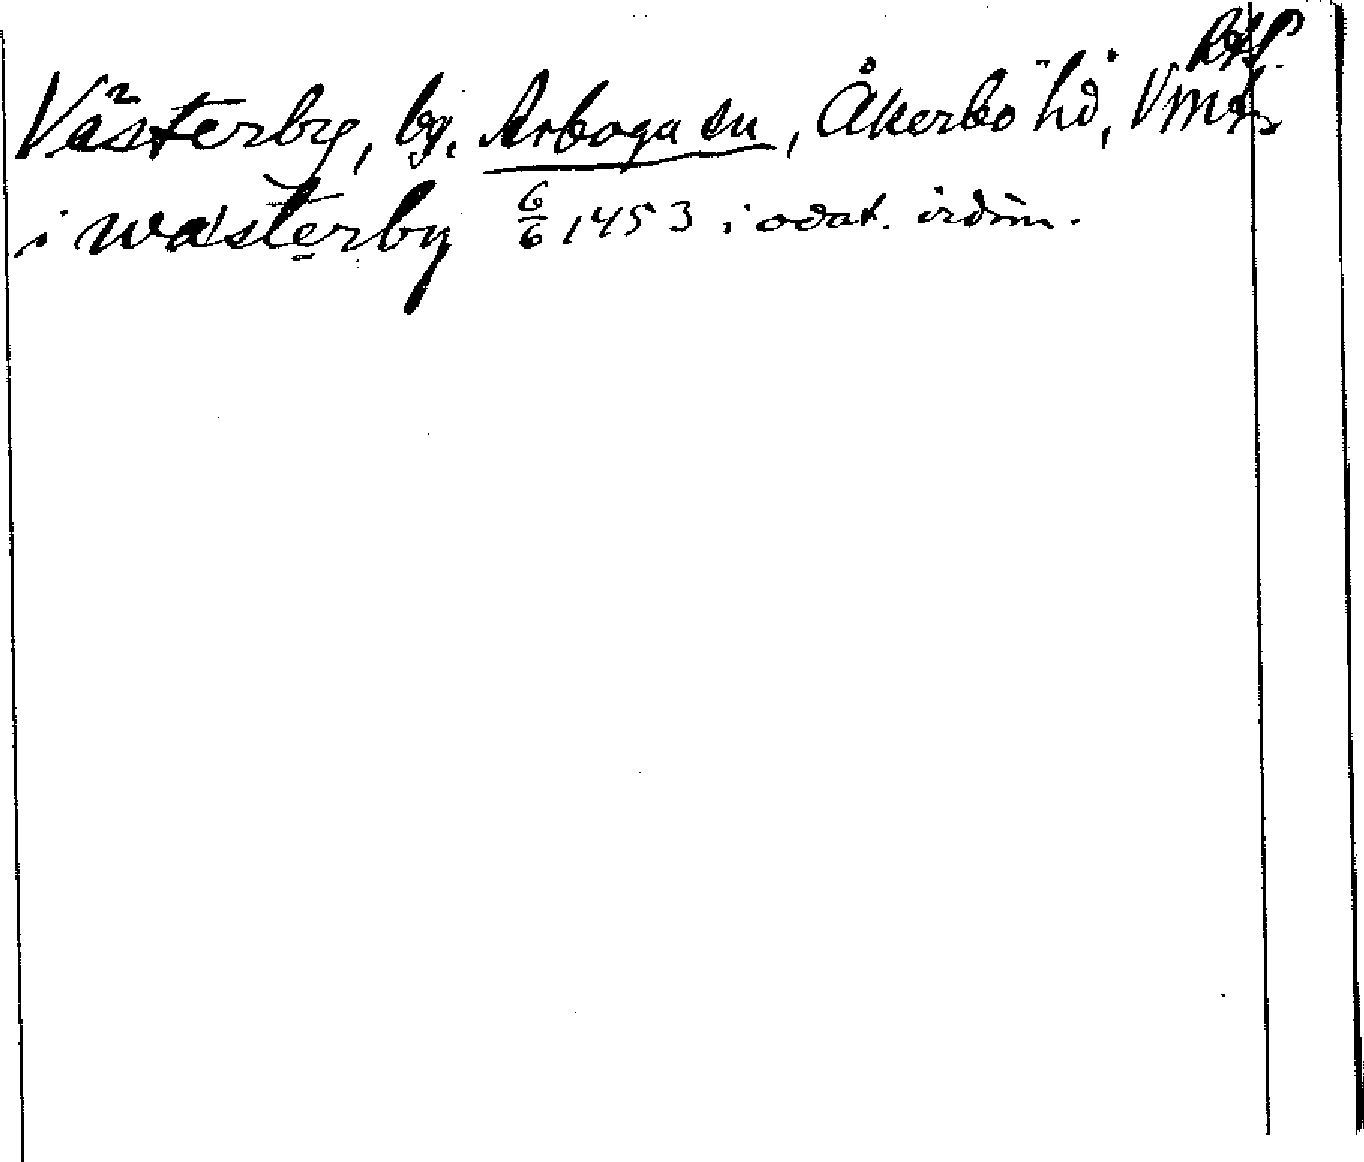 Västerby, by, Arboga sn, Åkerbo hd, Vml
i wästerby 6/6 1453 i odat.